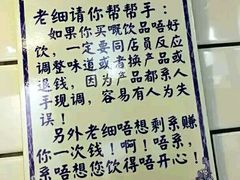 老细请你帮帮手:
如果你买嘅饮品唔好
饮,一定要同店员反应
调整味道或者换产品或
退钱,因为产品都系人
手现调,容易有人为失
误!
另外老细唔想剩系赚
你一次钱!啊!唔系,
系唔想您饮得唔开心!